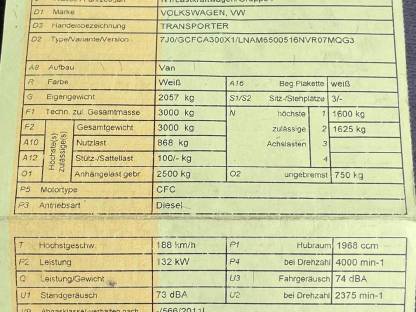 D1 Marke VOLKSWAGEN, VW
D3 Handelsbezeichnung TRANSPORTER
D2 Type/Variante/Version 7J0/GCFCA300X1/LNAM6500516NVR07MQG3
A8 Aufbau Van
R Farbe Weiß A16 Beg Plakette weiß
G Eigengewicht 2057 kg S1/S2 Sitz-/Stehplätze 3/-
F1 Techn. zul. Gesamtmasse 3000 kg N höchste 1 1600 kg
F2 Gesamtgewicht 3000 kg zulässige 2 1625 kg
Höchste(s) zulässige(s)
A10 Nutzlast 868 kg Achslasten 3
A12 Stütz-/Sattellast 100/- kg 4
O1 Anhängelast gebr. 2500 kg O2 ungebremst 750 kg
P5 Motortype CFC
P3 Antriebsart Diesel
T Höchstgeschw. 188 km/h P1 Hubraum 1968 ccm
P2 Leistung 132 kW P4 bei Drehzahl 4000 min-1
Q Leistung/Gewicht U3 Fahrgeräusch 74 dBA
U1 Standgeräusch 73 dBA U2 bei Drehzahl 2375 min-1